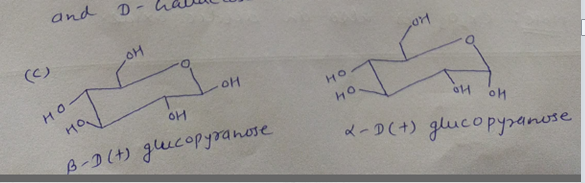 and D-
(c)
OH
O
OH
HO
HO
OH
β-D(+) glucopyranose
OH
O
HO
HO
OH
OH
α-D(+) glucopyranose